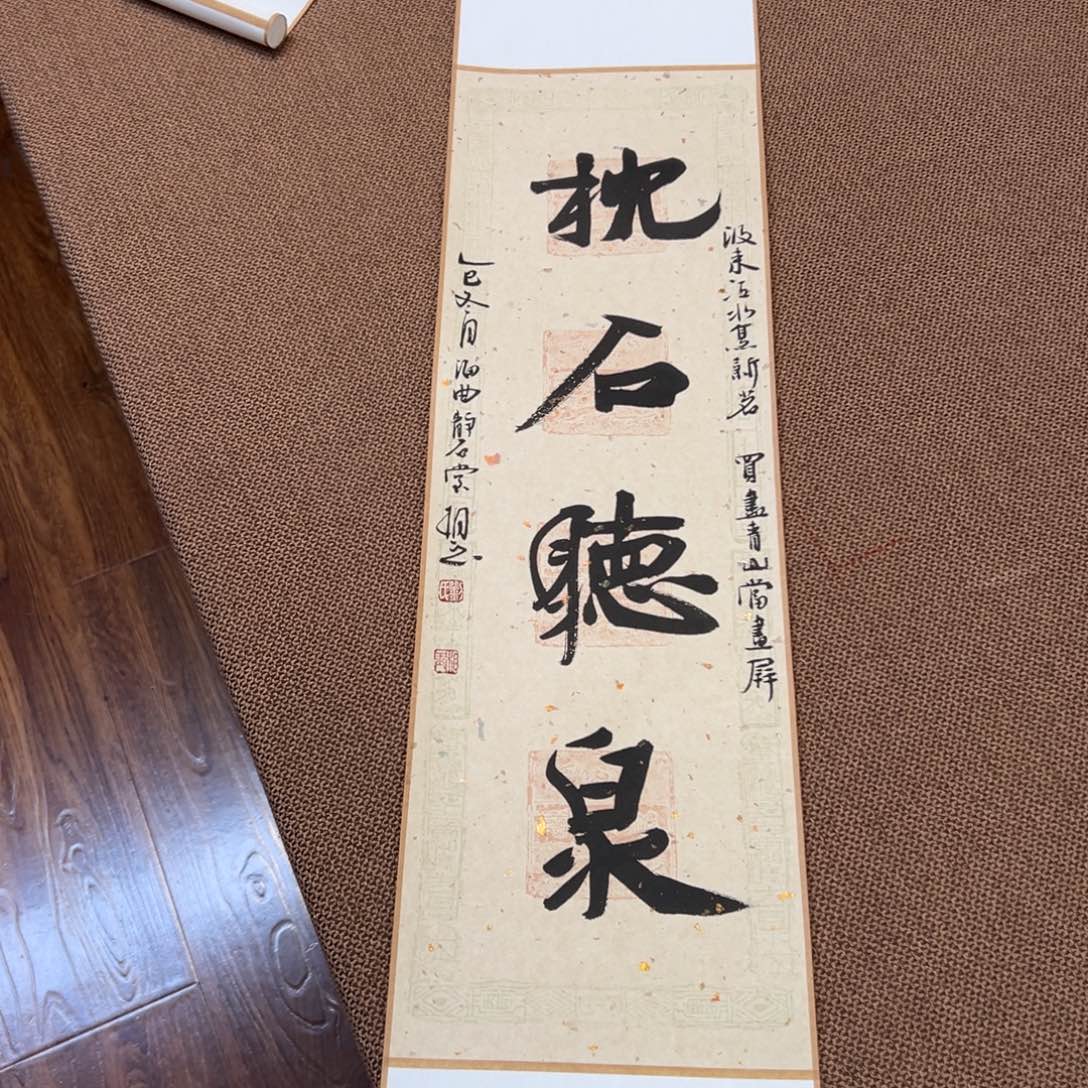 汲来江水煮新茗 買盡青山當畫屏
枕石聽泉
乙巳冬月 曲静石堂